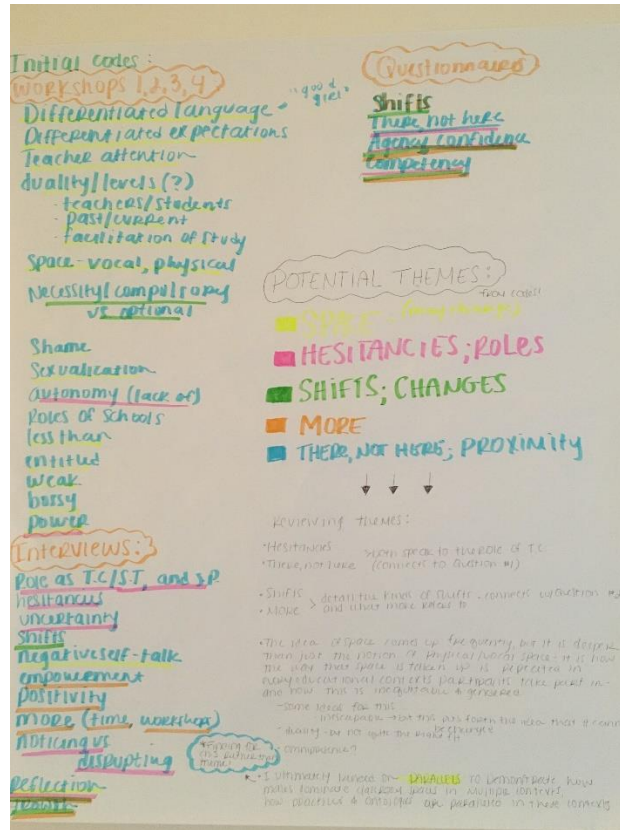 Initial codes:
Workshops 1,2,3,4
Differentiated language - "good girl"
Differentiated expectations
Teacher attention
duality/levels (?)
- teachers/students
- past/current
- facilitation of study
Space - vocal, physical
Necessity/compulsory
vs optional
Shame
Sexualization
autonomy (lack of)
Roles of Schools
less than
entitled
weak
bossy
power
Interviews:
Role as T.C/S.T, and J.P.
hesitancies
uncertainty
Shifts
negative self-talk
empowerment
positivity
more (time, workshops)
noticing vs
disrupting
Reflection
Growth
Questionnaires
Shifts
There not here
Agency confidence
Competency
POTENTIAL THEMES:
from codes!
HESITANCIES; ROLES
SHIFTS; CHANGES
MORE
THERE, NOT HERE; PROXIMITY
Reviewing themes:
• Hesitancies
• There, not here
> both speak to the role of T.C.
(connects to question #1)
• Shifts
• MORE
> detail the kinds of shifts - connects w/question
and what more refers to
• The idea of space comes up frequently, but it is deeper
than just the notion of physical/vocal space - it is how
the way that space is taken up is repeated in
every educational contexts participants take part in -
and how this is inequitable & gendered.
- some ideas for this
- duality - but not quite the right fit
• I ultimately landed on - PARALLELS to demonstrate how
males dominate space in multiple contexts,
how practices & are paralleled in these contexts